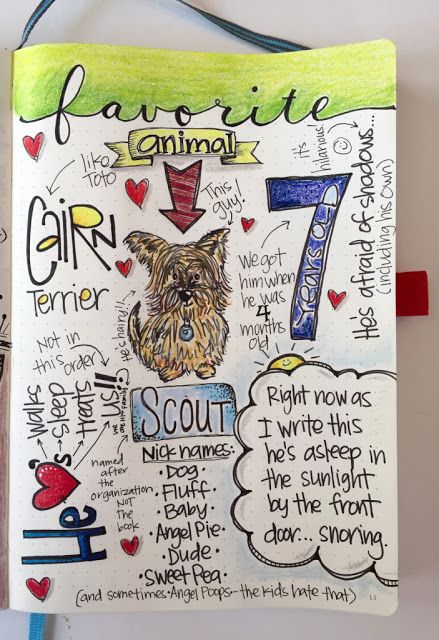 favorite
animal
like
Toto
This
guy!
Cairn
Terrier
7
years old
it's
hilarious!
He's afraid of shadows...
(including his own)
We got
him when
he was
4
months
old
He's
walks
sleep
treats
us!!!
Not in
this order
SCOUT
named
after
the
organization
NOT
the
book
Nicknames:
• Dog •
• Fluff •
• Baby •
• Angel Pie •
• Dude •
• Sweet Pea •
(and sometimes • Angel Poops - the kids hate that)
Right now as
I write this
he's asleep in
the sunlight
by the front
door... snoring.
15